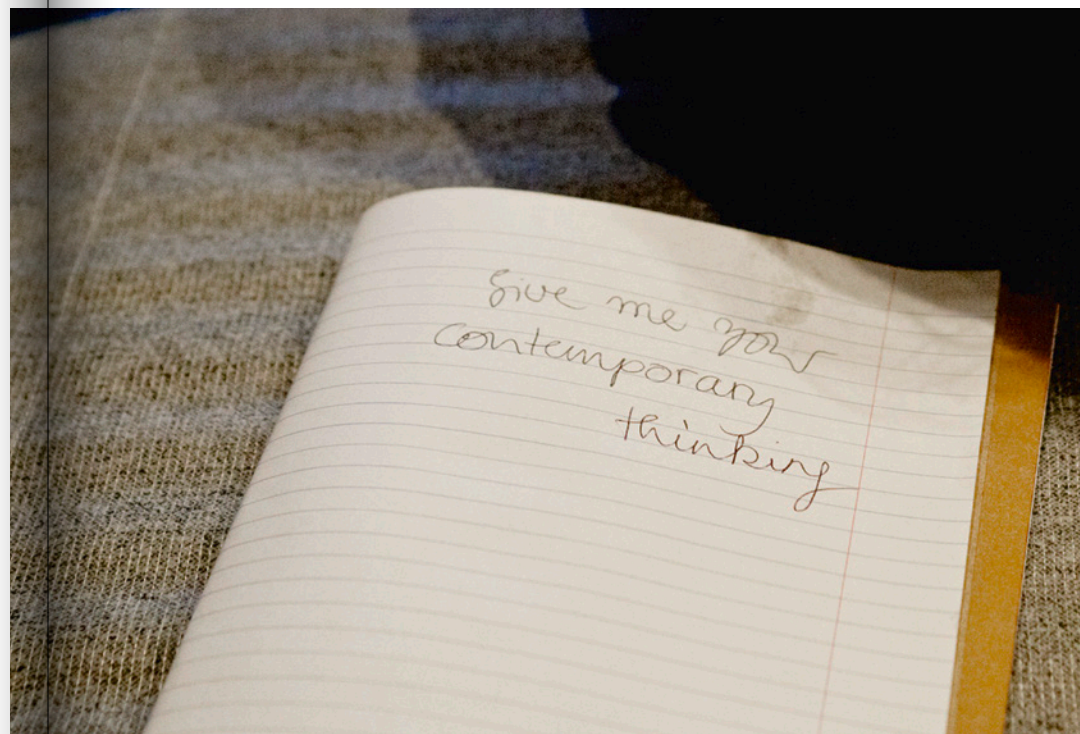 give me your
contemporary
thinking